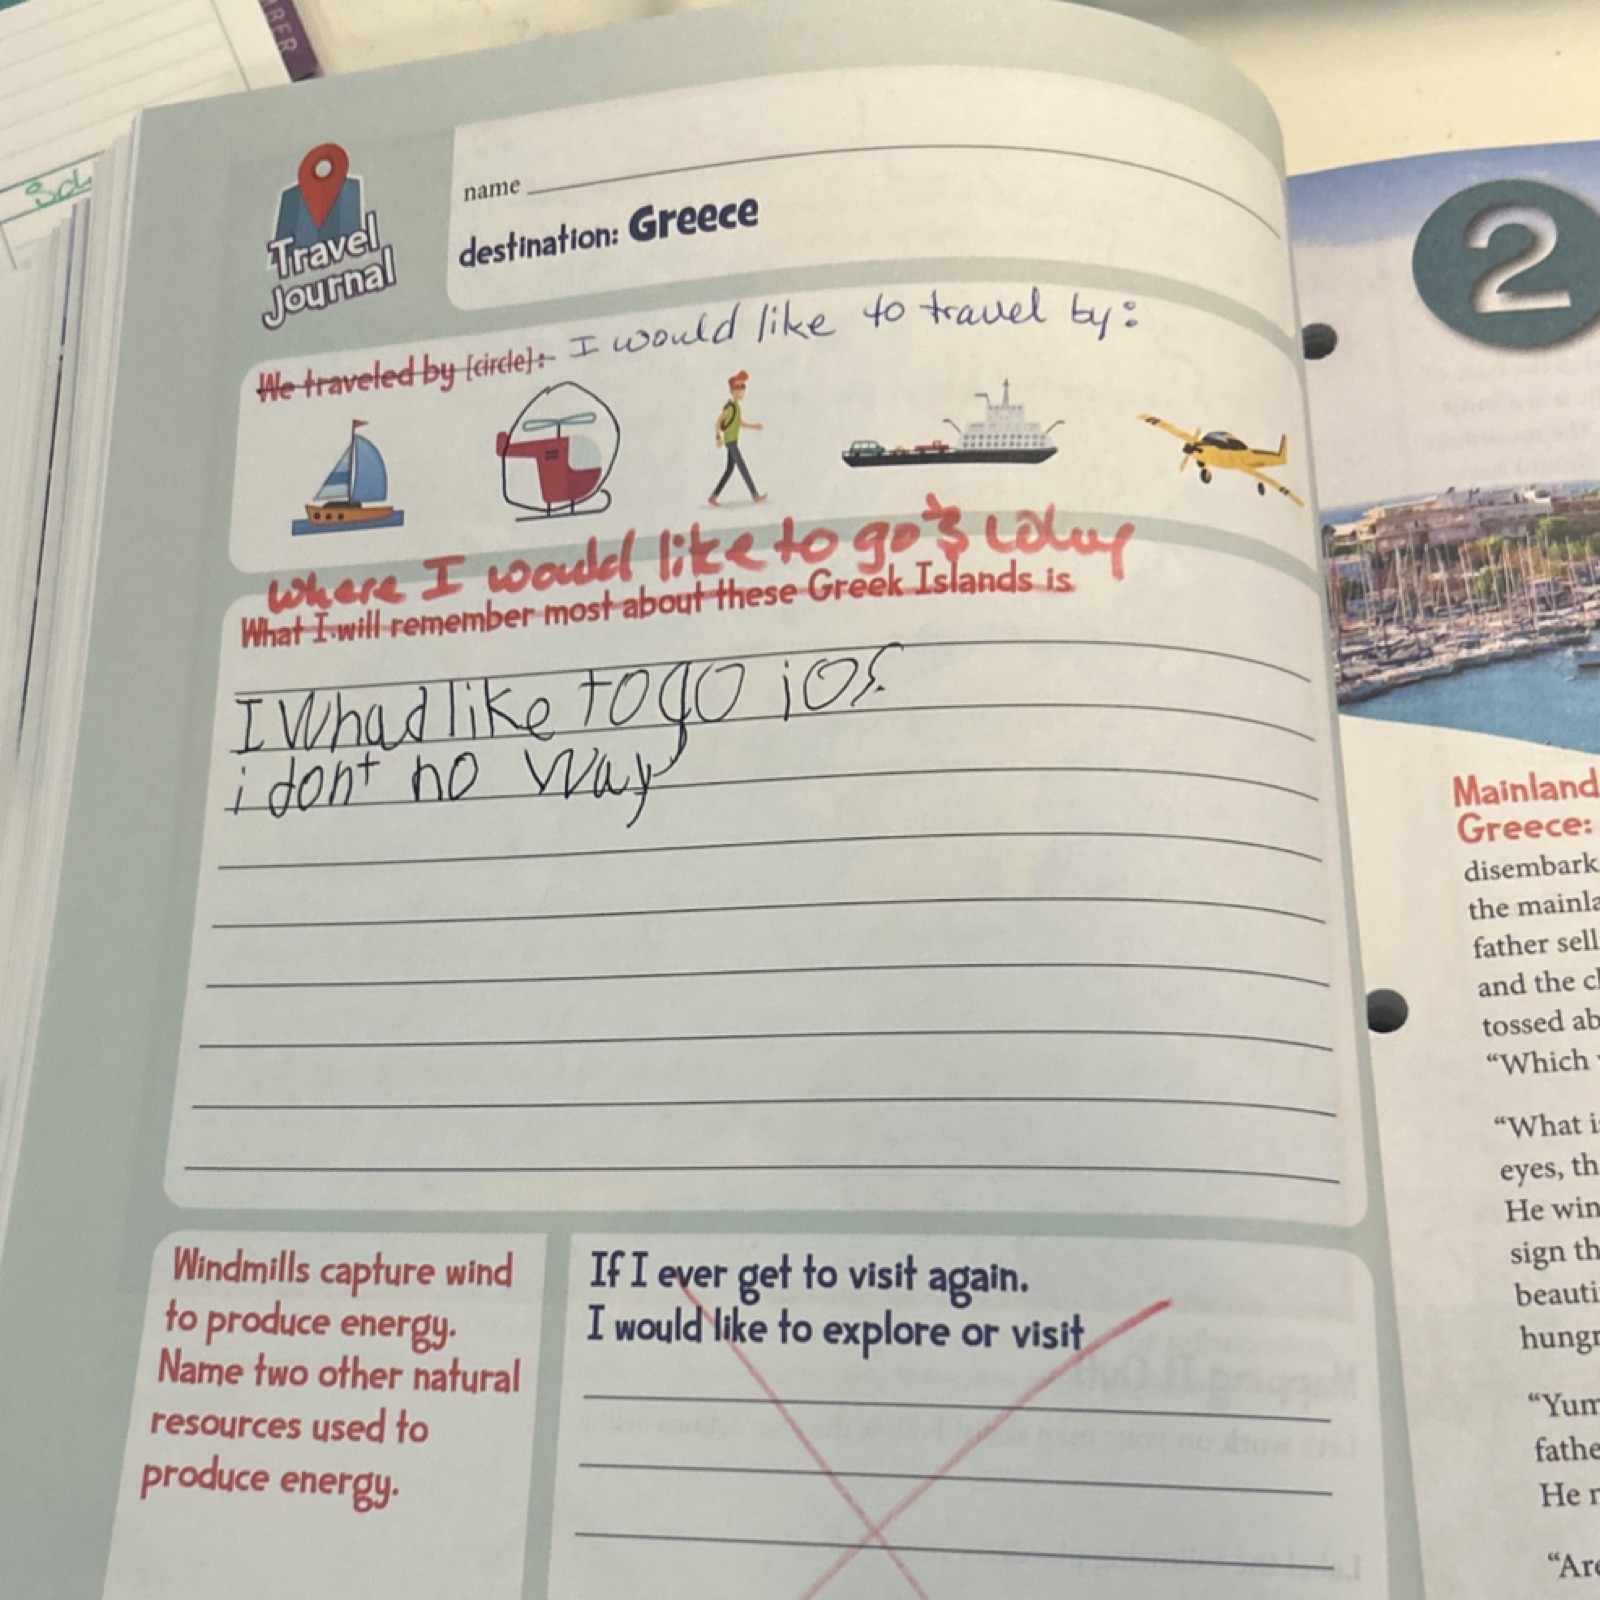 BER
Travel
Journal
name
destination: Greece
We traveled by [circle]: I would like to travel by:
Where I would like to go & why
What I will remember most about these Greek Islands is
I Whad like to go ios.
i don't no way
Windmills capture wind
to produce energy.
Name two other natural
resources used to
produce energy.
If I ever get to visit again.
I would like to explore or visit
2
Mainland
Greece:
disembark
the mainla
father sell
and the cl
tossed ab
“Which
“What i
eyes, th
He win
sign th
beauti
hungr
“Yum
fathe
He r
“Are